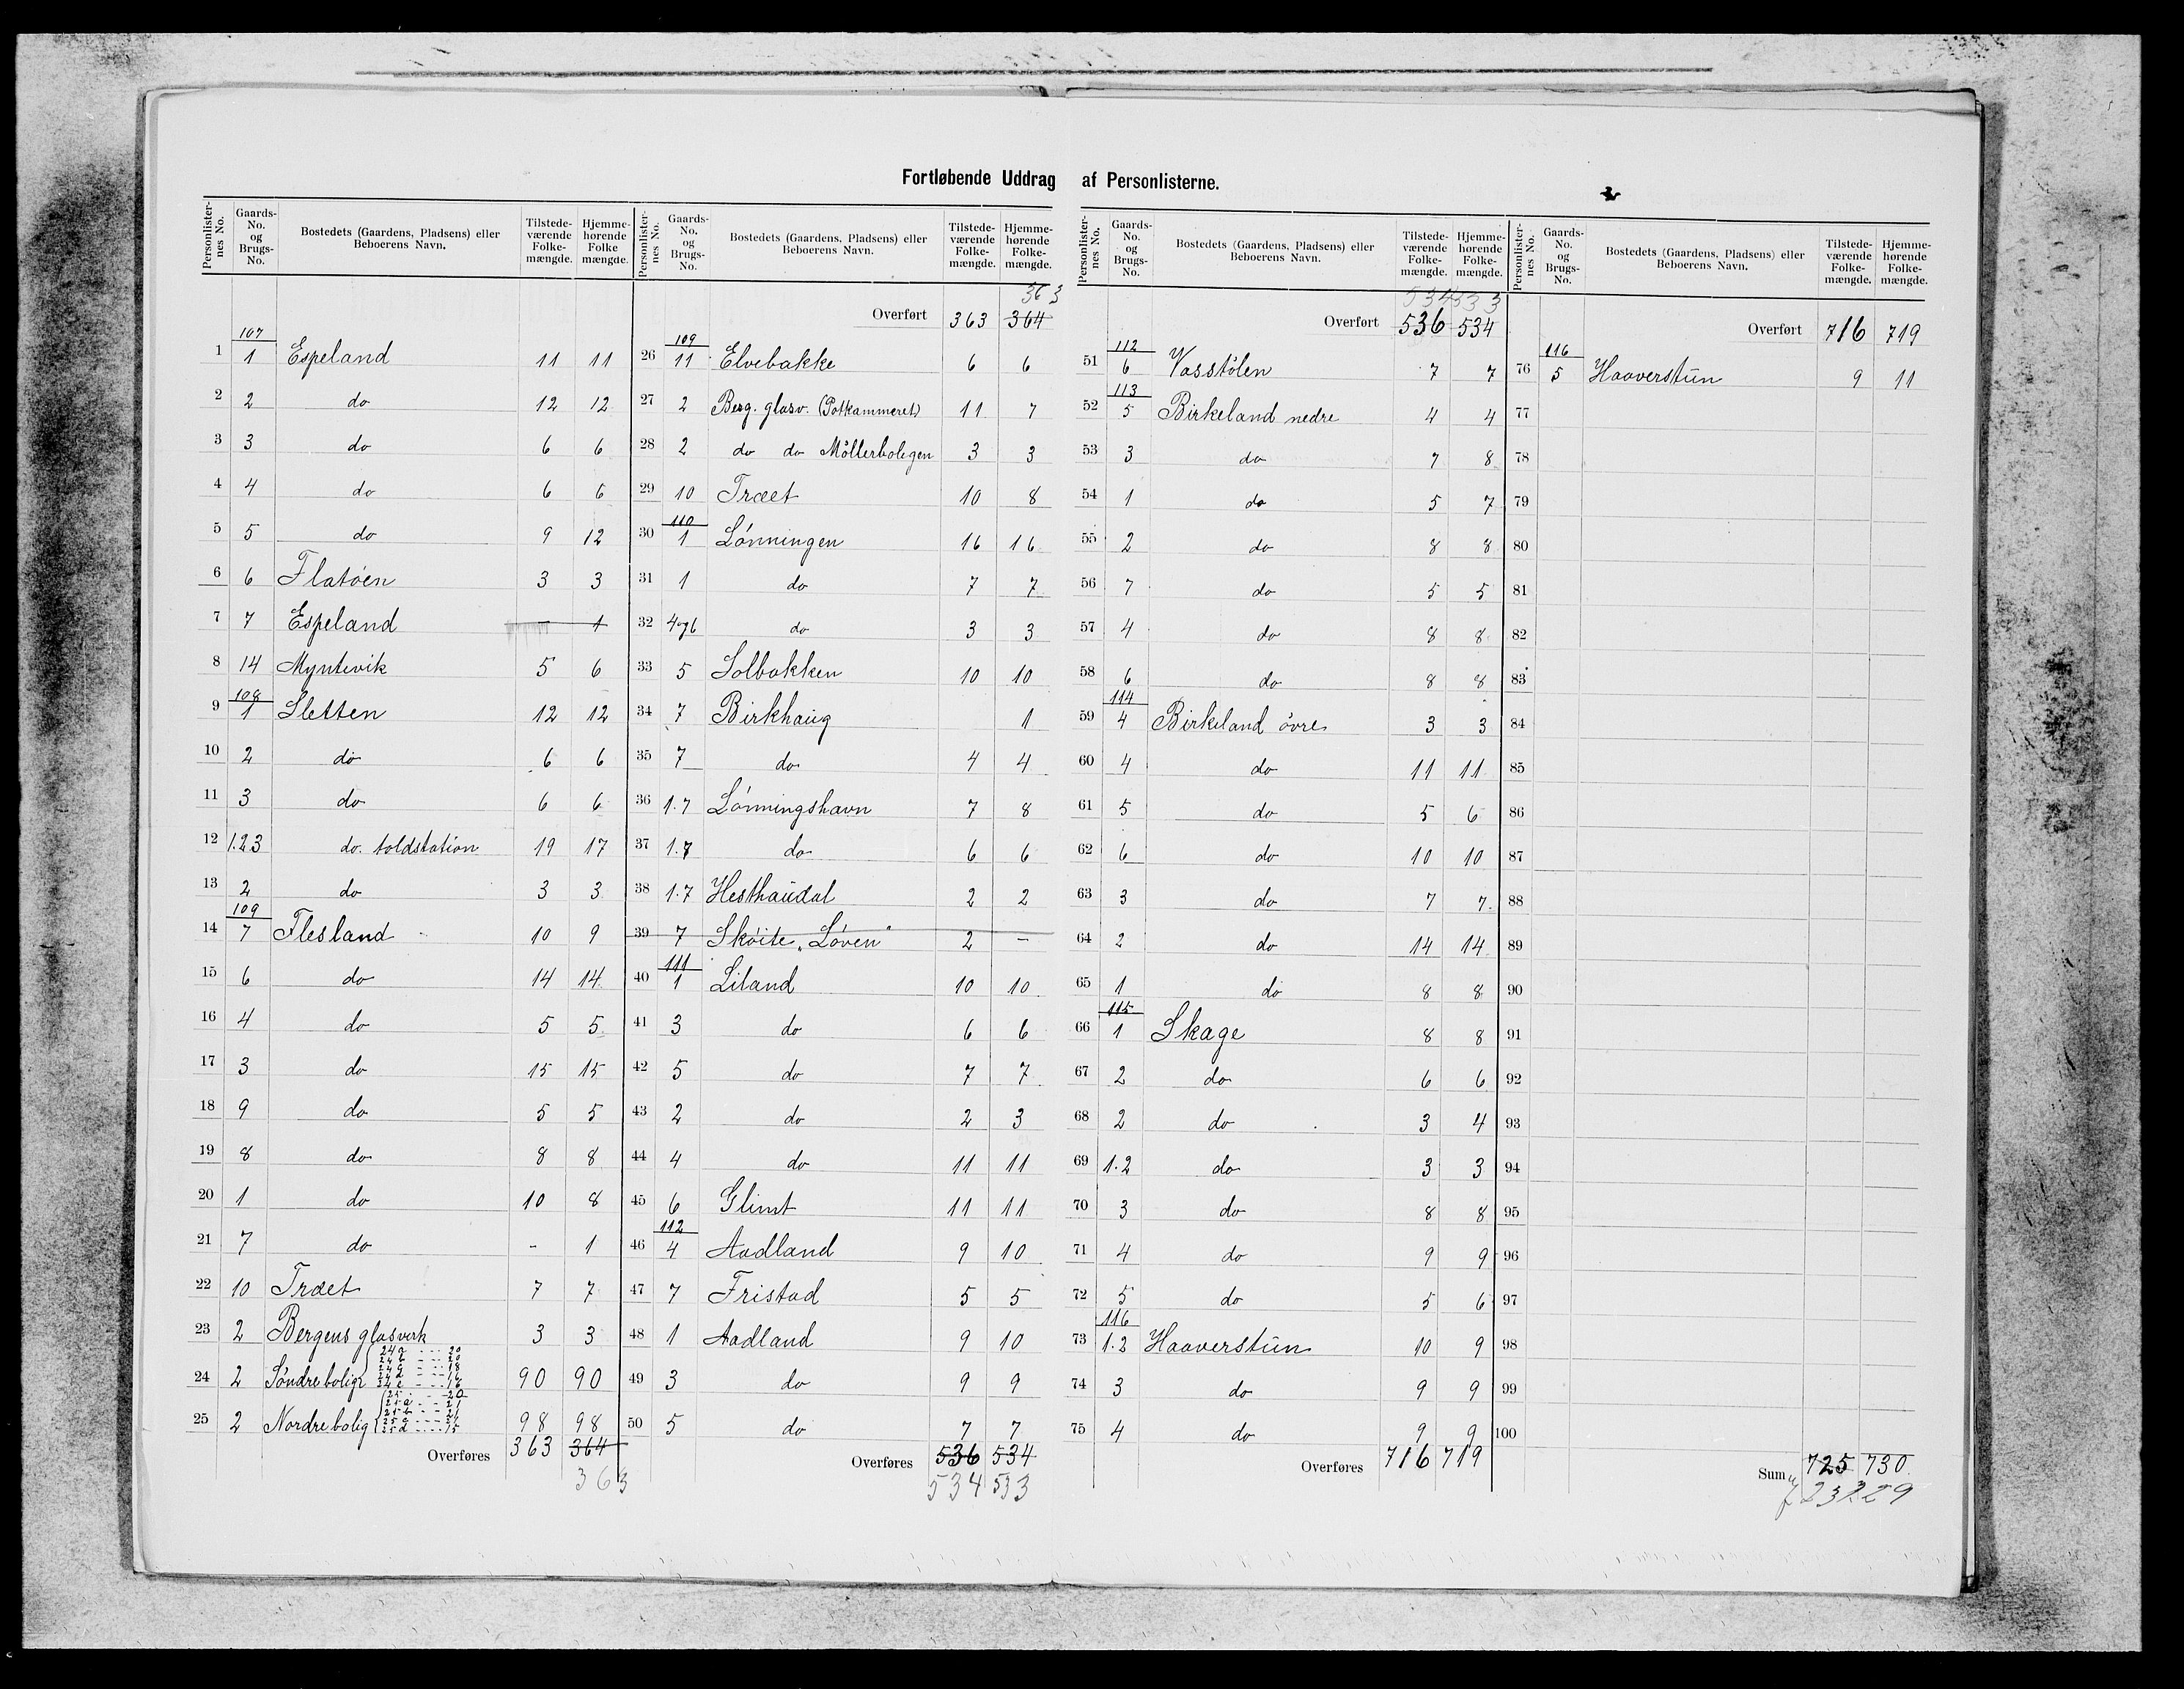 Fortløbende Uddrag af Personlisterne.
Personlister-nes No. | Gaards-No. og Brugs-No. | Bostedets (Gaardens, Pladsens) eller Beboerens Navn. | Tilstede-værende Folke-mængde. | Hjemme-hørende Folke mængde.
107
1 | 1 | Espeland | 11 | 11
2 | 2 | do | 12 | 12
3 | 3 | do | 6 | 6
4 | 4 | do | 6 | 6
5 | 5 | do | 9 | 12
6 | 6 | Flatøen | 3 | 3
7 | 7 | Espeland | - | 1
8 | 14 | Myntevik | 5 | 6
108
9 | 1 | Sletten | 12 | 12
10 | 2 | do | 6 | 6
11 | 3 | do | 6 | 6
12 | 1.2.3 | do. toldstation | 19 | 17
13 | 2 | do | 3 | 3
109
14 | 7 | Flesland | 10 | 9
15 | 6 | do | 14 | 14
16 | 4 | do | 5 | 5
17 | 3 | do | 15 | 15
18 | 9 | do | 5 | 5
19 | 8 | do | 8 | 8
20 | 1 | do | 10 | 8
21 | 7 | do | - | 1
22 | 10 | Træet | 7 | 7
23 | 2 | Bergens glasverk | 3 | 3
24 | 2 | Søndre bolig | 90 | 90
25 | 2 | Nordre bolig | 98 | 98
Overføres 363 364
363
Personlister-nes No. | Gaards-No. og Brugs-No. | Bostedets (Gaardens, Pladsens) eller Beboerens Navn. | Tilstede-værende Folke-mængde. | Hjemme-hørende Folke-mængde.
363
Overført 363 364
109
26 | 11 | Elvebakke | 6 | 6
27 | 2 | Berg. glasv. (Potkammeret) | 11 | 7
28 | 2 | do do Møllerboligen | 3 | 3
29 | 10 | Træet | 10 | 8
110
30 | 1 | Lønningen | 16 | 16
31 | 1 | do | 7 | 7
32 | 4 og 6 | do | 3 | 3
33 | 5 | Solbakken | 10 | 10
34 | 7 | Birkhaug | | 1
35 | 7 | do | 4 | 4
36 | 1.7 | Lønningshavn | 7 | 8
37 | 1.7 | do | 6 | 6
38 | 1.7 | Hesthaudal | 2 | 2
39 | 7 | Skøite „Løven" | 2 | -
111
40 | 1 | Liland | 10 | 10
41 | 3 | do | 6 | 6
42 | 5 | do | 7 | 7
43 | 2 | do | 2 | 3
44 | 4 | do | 11 | 11
45 | 6 | Glimt | 11 | 11
112
46 | 4 | Aadland | 9 | 10
47 | 7 | Fristad | 5 | 5
48 | 1 | Aadland | 9 | 10
49 | 3 | do | 9 | 9
50 | 5 | do | 7 | 7
Overføres 536 534
534 533
Personlister-nes No. | Gaards-No. og Brugs-No. | Bostedets (Gaardens, Pladsens) eller Beboerens Navn. | Tilstede-værende Folke-mængde. | Hjemme-hørende Folke-mængde.
534 533
Overført 536 534
112
51 | 6 | Vasstølen | 7 | 7
113
52 | 5 | Birkeland nedre | 4 | 4
53 | 3 | do | 7 | 8
54 | 1 | do | 5 | 7
55 | 2 | do | 8 | 8
56 | 7 | do | 5 | 5
57 | 4 | do | 8 | 8
58 | 6 | do | 8 | 8
114
59 | 4 | Birkeland øvre | 3 | 3
60 | 4 | do | 11 | 11
61 | 5 | do | 5 | 6
62 | 6 | do | 10 | 10
63 | 3 | do | 7 | 7
64 | 2 | do | 14 | 14
65 | 1 | do | 8 | 8
115
66 | 1 | Skage | 8 | 8
67 | 2 | do | 6 | 6
68 | 2 | do | 3 | 4
69 | 1.2 | do | 3 | 3
70 | 3 | do | 8 | 8
71 | 4 | do | 9 | 9
72 | 5 | do | 5 | 6
116
73 | 1.2 | Haaverstun | 10 | 9
74 | 3 | do | 9 | 9
75 | 4 | do | 9 | 9
Overføres 716 719
Personlister-nes No. | Gaards-No. og Brugs-No. | Bostedets (Gaardens, Pladsens) eller Beboerens Navn. | Tilstede-værende Folke-mængde. | Hjemme-hørende Folke-mængde.
Overført 716 719
116
76 | 5 | Haaverstun | 9 | 11
77
78
79
80
81
82
83
84
85
86
87
88
89
90
91
92
93
94
95
96
97
98
99
100
Sum 725 730
723 729